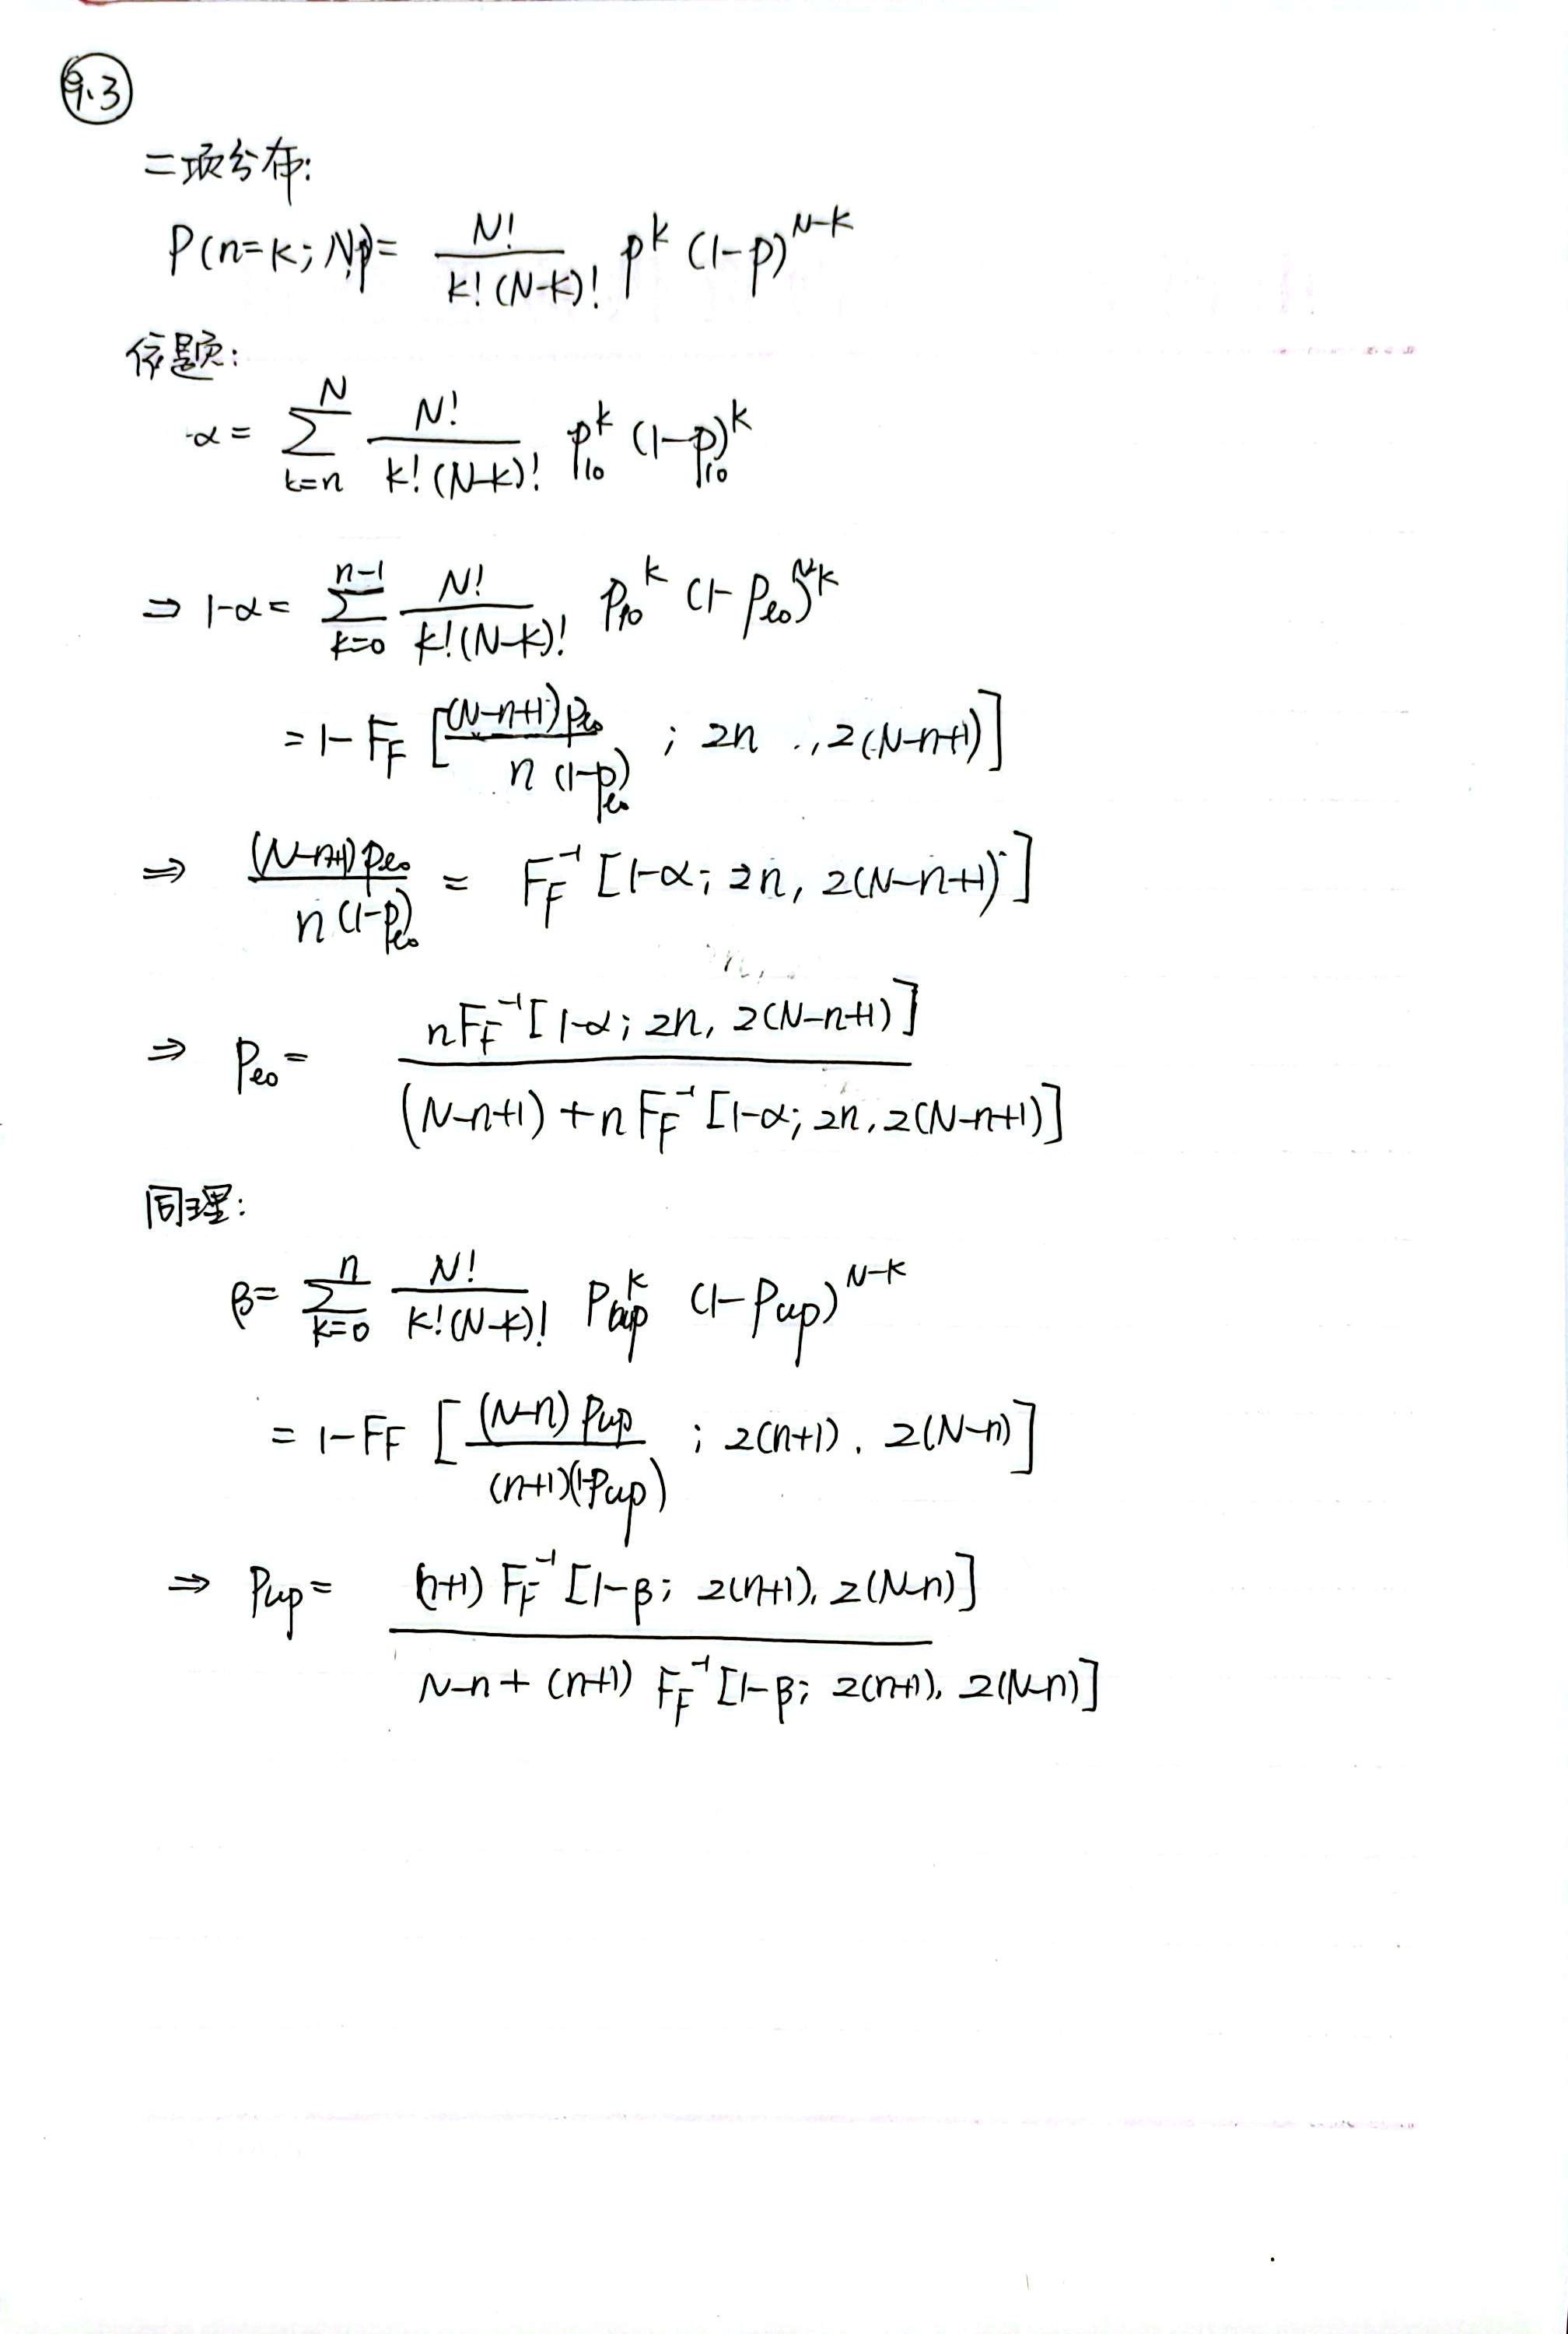 9.3
二项分布:
P(n=k; N,p)= \frac{N!}{k!(N-k)!} p^k (1-p)^{N-k}
依题:
α = \sum_{k=n}^{N} \frac{N!}{k!(N-k)!} p_{lo}^k (1-p_{lo})^k
⇒ 1-α = \sum_{k=0}^{n-1} \frac{N!}{k!(N-k)!} p_{lo}^k (1-p_{lo})^{N-k}
= 1 - F_F [\frac{(N-n+1)p_{lo}}{n(1-p_{lo})} ; 2n, 2(N-n+1)]
⇒ \frac{(N-n+1)p_{lo}}{n(1-p_{lo})} = F_F^{-1} [1-α; 2n, 2(N-n+1)]
⇒ p_{lo} = \frac{nF_F^{-1}[1-α; 2n, 2(N-n+1)]}{(N-n+1)+nF_F^{-1}[1-α; 2n, 2(N-n+1)]}
同理:
β= \sum_{k=0}^{n} \frac{N!}{k!(N-k)!} p_{up}^k (1-p_{up})^{N-k}
= 1-F_F [\frac{(N-n)p_{up}}{(n+1)(1-p_{up})} ; 2(n+1), 2(N-n)]
⇒ p_{up} = \frac{(n+1) F_F^{-1} [1-β; 2(n+1), 2(N-n)]}{N-n+(n+1) F_F^{-1} [1-β; 2(n+1), 2(N-n)]}